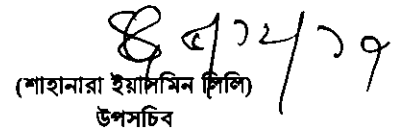 (শাহানারা ইয়াসমিন লিলি)
উপসচিব